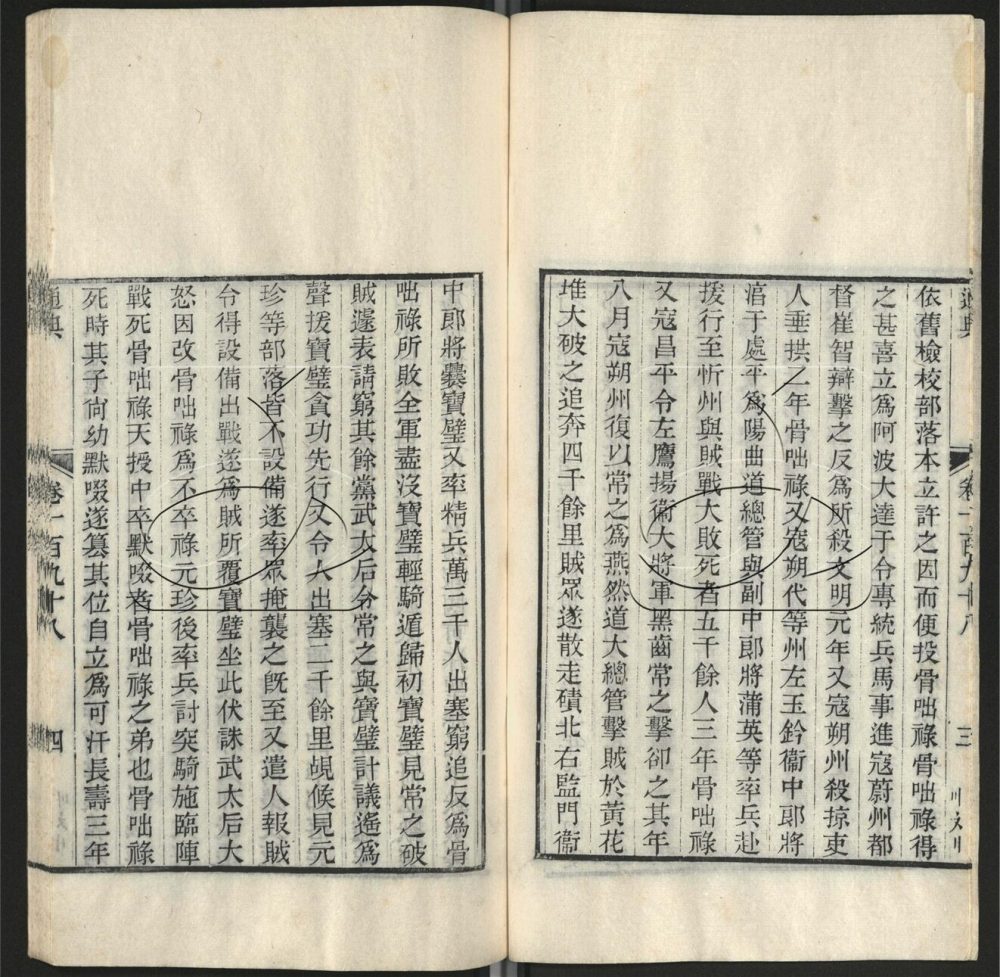 依舊檢校部落本立許之因而便投骨咄祿骨咄祿得
之甚喜立爲阿波大達于令專統兵馬事進寇蔚州都
督崔智辯擊之反爲所殺文明元年又寇朔州殺掠吏
人垂拱二年骨咄祿又寇朔代等州左玉鈐衞中郞將
淳于處平爲陽曲道總管與副中郞將蒲英等率兵赴
援行至忻州與賊戰大敗死者五千餘人三年骨咄祿
又寇昌平令左鷹揚衞大將軍黑齒常之擊卻之其年
八月寇朔州復以常之爲燕然道大總管擊賊於黃花
堆大破之追奔四千餘里賊眾遂散走磧北右監門衞
通典
卷一百九十八
三
中郞將爨寶璧又率精兵萬三千人出塞窮追反爲骨
咄祿所敗全軍盡沒寶璧輕騎遁歸初寶璧見常之破
賊遽表請窮其餘黨武太后令常之與寶璧計議遙爲
聲援寶璧貪功先行又令人出塞二千餘里覘候見元
珍等部落皆不設備遂率眾掩襲之旣至又遣人報賊
令得設備出戰遂爲賊所覆寶璧坐此伏誅武太后大
怒因改骨咄祿爲不卒祿元珍後率兵討突騎施臨陣
戰死骨咄祿天授中卒默啜者骨咄祿之弟也骨咄祿
死時其子尙幼默啜遂篡其位自立爲可汗長壽三年
通典
卷一百九十八
四